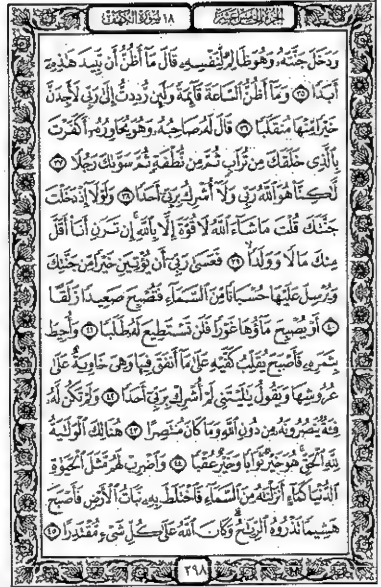 الجزء الخامس عشر ١٨ سورة الكهف
وَدَخَلَ جَنَّتَهُۥ وَهُوَ ظَالِمٌ لِّنَفْسِهِۦ قَالَ مَآ أَظُنُّ أَن تَبِيدَ هَٰذِهِۦٓ
أَبَدًا ۝٣٥ وَمَآ أَظُنُّ ٱلسَّاعَةَ قَآئِمَةً وَلَئِن رُّدِدتُّ إِلَىٰ رَبِّى لَأَجِدَنَّ
خَيْرًا مِّنْهَا مُنقَلَبًا ۝٣٦ قَالَ لَهُۥ صَاحِبُهُۥ وَهُوَ يُحَاوِرُهُۥٓ أَكَفَرْتَ
بِٱلَّذِى خَلَقَكَ مِن تُرَابٍ ثُمَّ مِن نُّطْفَةٍ ثُمَّ سَوَّىٰكَ رَجُلًا ۝٣٧
لَّٰكِنَّا۠ هُوَ ٱللَّهُ رَبِّى وَلَآ أُشْرِكُ بِرَبِّىٓ أَحَدًا ۝٣٨ وَلَوْلَآ إِذْ دَخَلْتَ
جَنَّتَكَ قُلْتَ مَا شَآءَ ٱللَّهُ لَا قُوَّةَ إِلَّا بِٱللَّهِ ۚ إِن تَرَنِ أَنَا۠ أَقَلَّ
مِنكَ مَالًا وَوَلَدًا ۝٣٩ فَعَسَىٰ رَبِّىٓ أَن يُؤْتِيَنِ خَيْرًا مِّن جَنَّتِكَ
وَيُرْسِلَ عَلَيْهَا حُسْبَانًا مِّنَ ٱلسَّمَآءِ فَتُصْبِحَ صَعِيدًا زَلَقًا
۝٤٠ أَوْ يُصْبِحَ مَآؤُهَا غَوْرًا فَلَن تَسْتَطِيعَ لَهُۥ طَلَبًا ۝٤١ وَأُحِيطَ
بِثَمَرِهِۦ فَأَصْبَحَ يُقَلِّبُ كَفَّيْهِ عَلَىٰ مَآ أَنفَقَ فِيهَا وَهِىَ خَاوِيَةٌ عَلَىٰ
عُرُوشِهَا وَيَقُولُ يَٰلَيْتَنِى لَمْ أُشْرِكْ بِرَبِّىٓ أَحَدًا ۝٤٢ وَلَمْ تَكُن لَّهُۥ
فِئَةٌ يَنصُرُونَهُۥ مِن دُونِ ٱللَّهِ وَمَا كَانَ مُنتَصِرًا ۝٤٣ هُنَالِكَ ٱلْوَلَٰيَةُ
لِلَّهِ ٱلْحَقِّ ۚ هُوَ خَيْرٌ ثَوَابًا وَخَيْرٌ عُقْبًا ۝٤٤ وَٱضْرِبْ لَهُم مَّثَلَ ٱلْحَيَوٰةِ
ٱلدُّنْيَا كَمَآءٍ أَنزَلْنَٰهُ مِنَ ٱلسَّمَآءِ فَٱخْتَلَطَ بِهِۦ نَبَاتُ ٱلْأَرْضِ فَأَصْبَحَ
هَشِيمًا تَذْرُوهُ ٱلرِّيَٰحُ ۗ وَكَانَ ٱللَّهُ عَلَىٰ كُلِّ شَىْءٍ مُّقْتَدِرًا ۝٤٥
٢٩٨